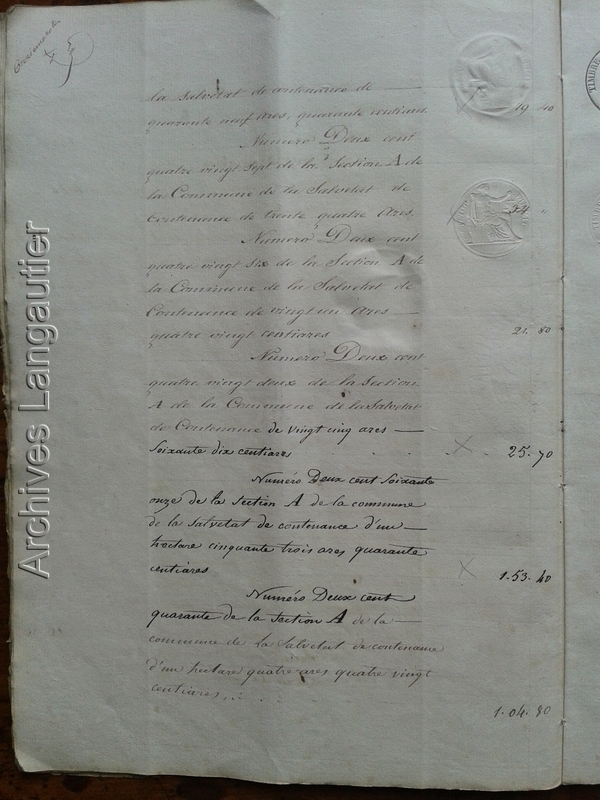 Troisième rôle
la Salvetat de contenance de
quarante neuf ares, quarante centiares. 49 40
Numéro Deux cent
quatre vingt sept de la Section A de
la Commune de la Salvetat de
Contenance de trente quatre Ares. 34 "
Numéro Deux cent
quatre vingt six de la Section A de
la Commune de la Salvetat de
Contenance de vingt un Ares
quatre vingt centiares 21. 80
Numéro Deux cent
quatre vingt deux de la Section
A de la Commune de la Salvetat
de Contenance de vingt cinq ares
soixante dix centiares 25. 70
Numéro Deux cent soixante
onze de la Section A de la commune
de la Salvetat de contenance d'un
hectare cinquante trois ares quarante
centiares 1. 53. 40
Numéro Deux cent
quarante de la Section A de la
commune de la Salvetat de contenance
d'un hectare quatre ares quatre vingt
centiares. 1. 04. 80
TIMBRE
Archives Langautier